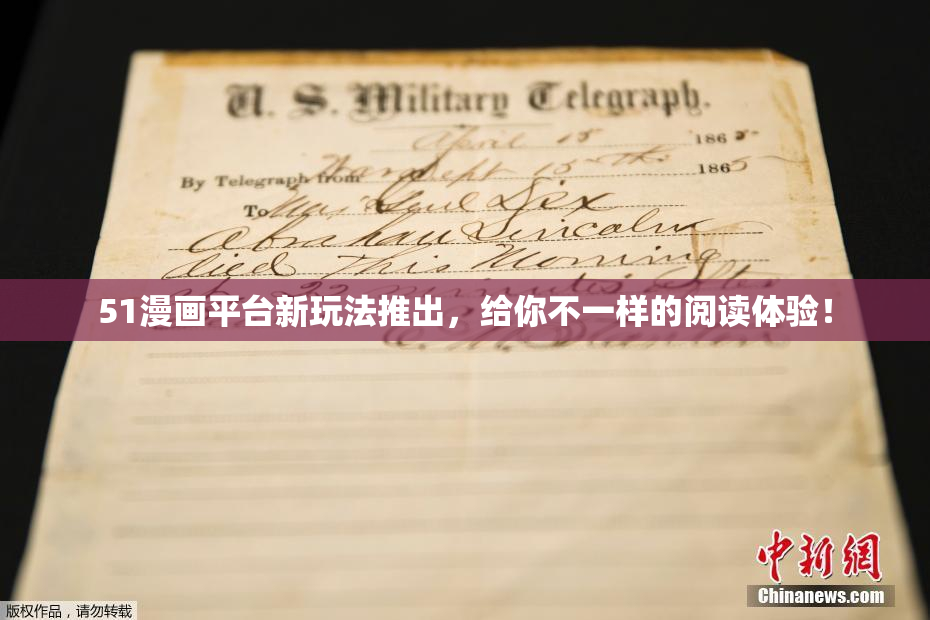 U. S. Military Telegraph.
April 15 1865
By Telegraph from War Dept 15th 1865
To Maj Genl Dix
Abraham Lincoln
died This Morning
at 22 minutes after
51漫画平台新玩法推出，给你不一样的阅读体验！
E. M. Stanton
中新网
Chinanews.com
版权作品，请勿转载